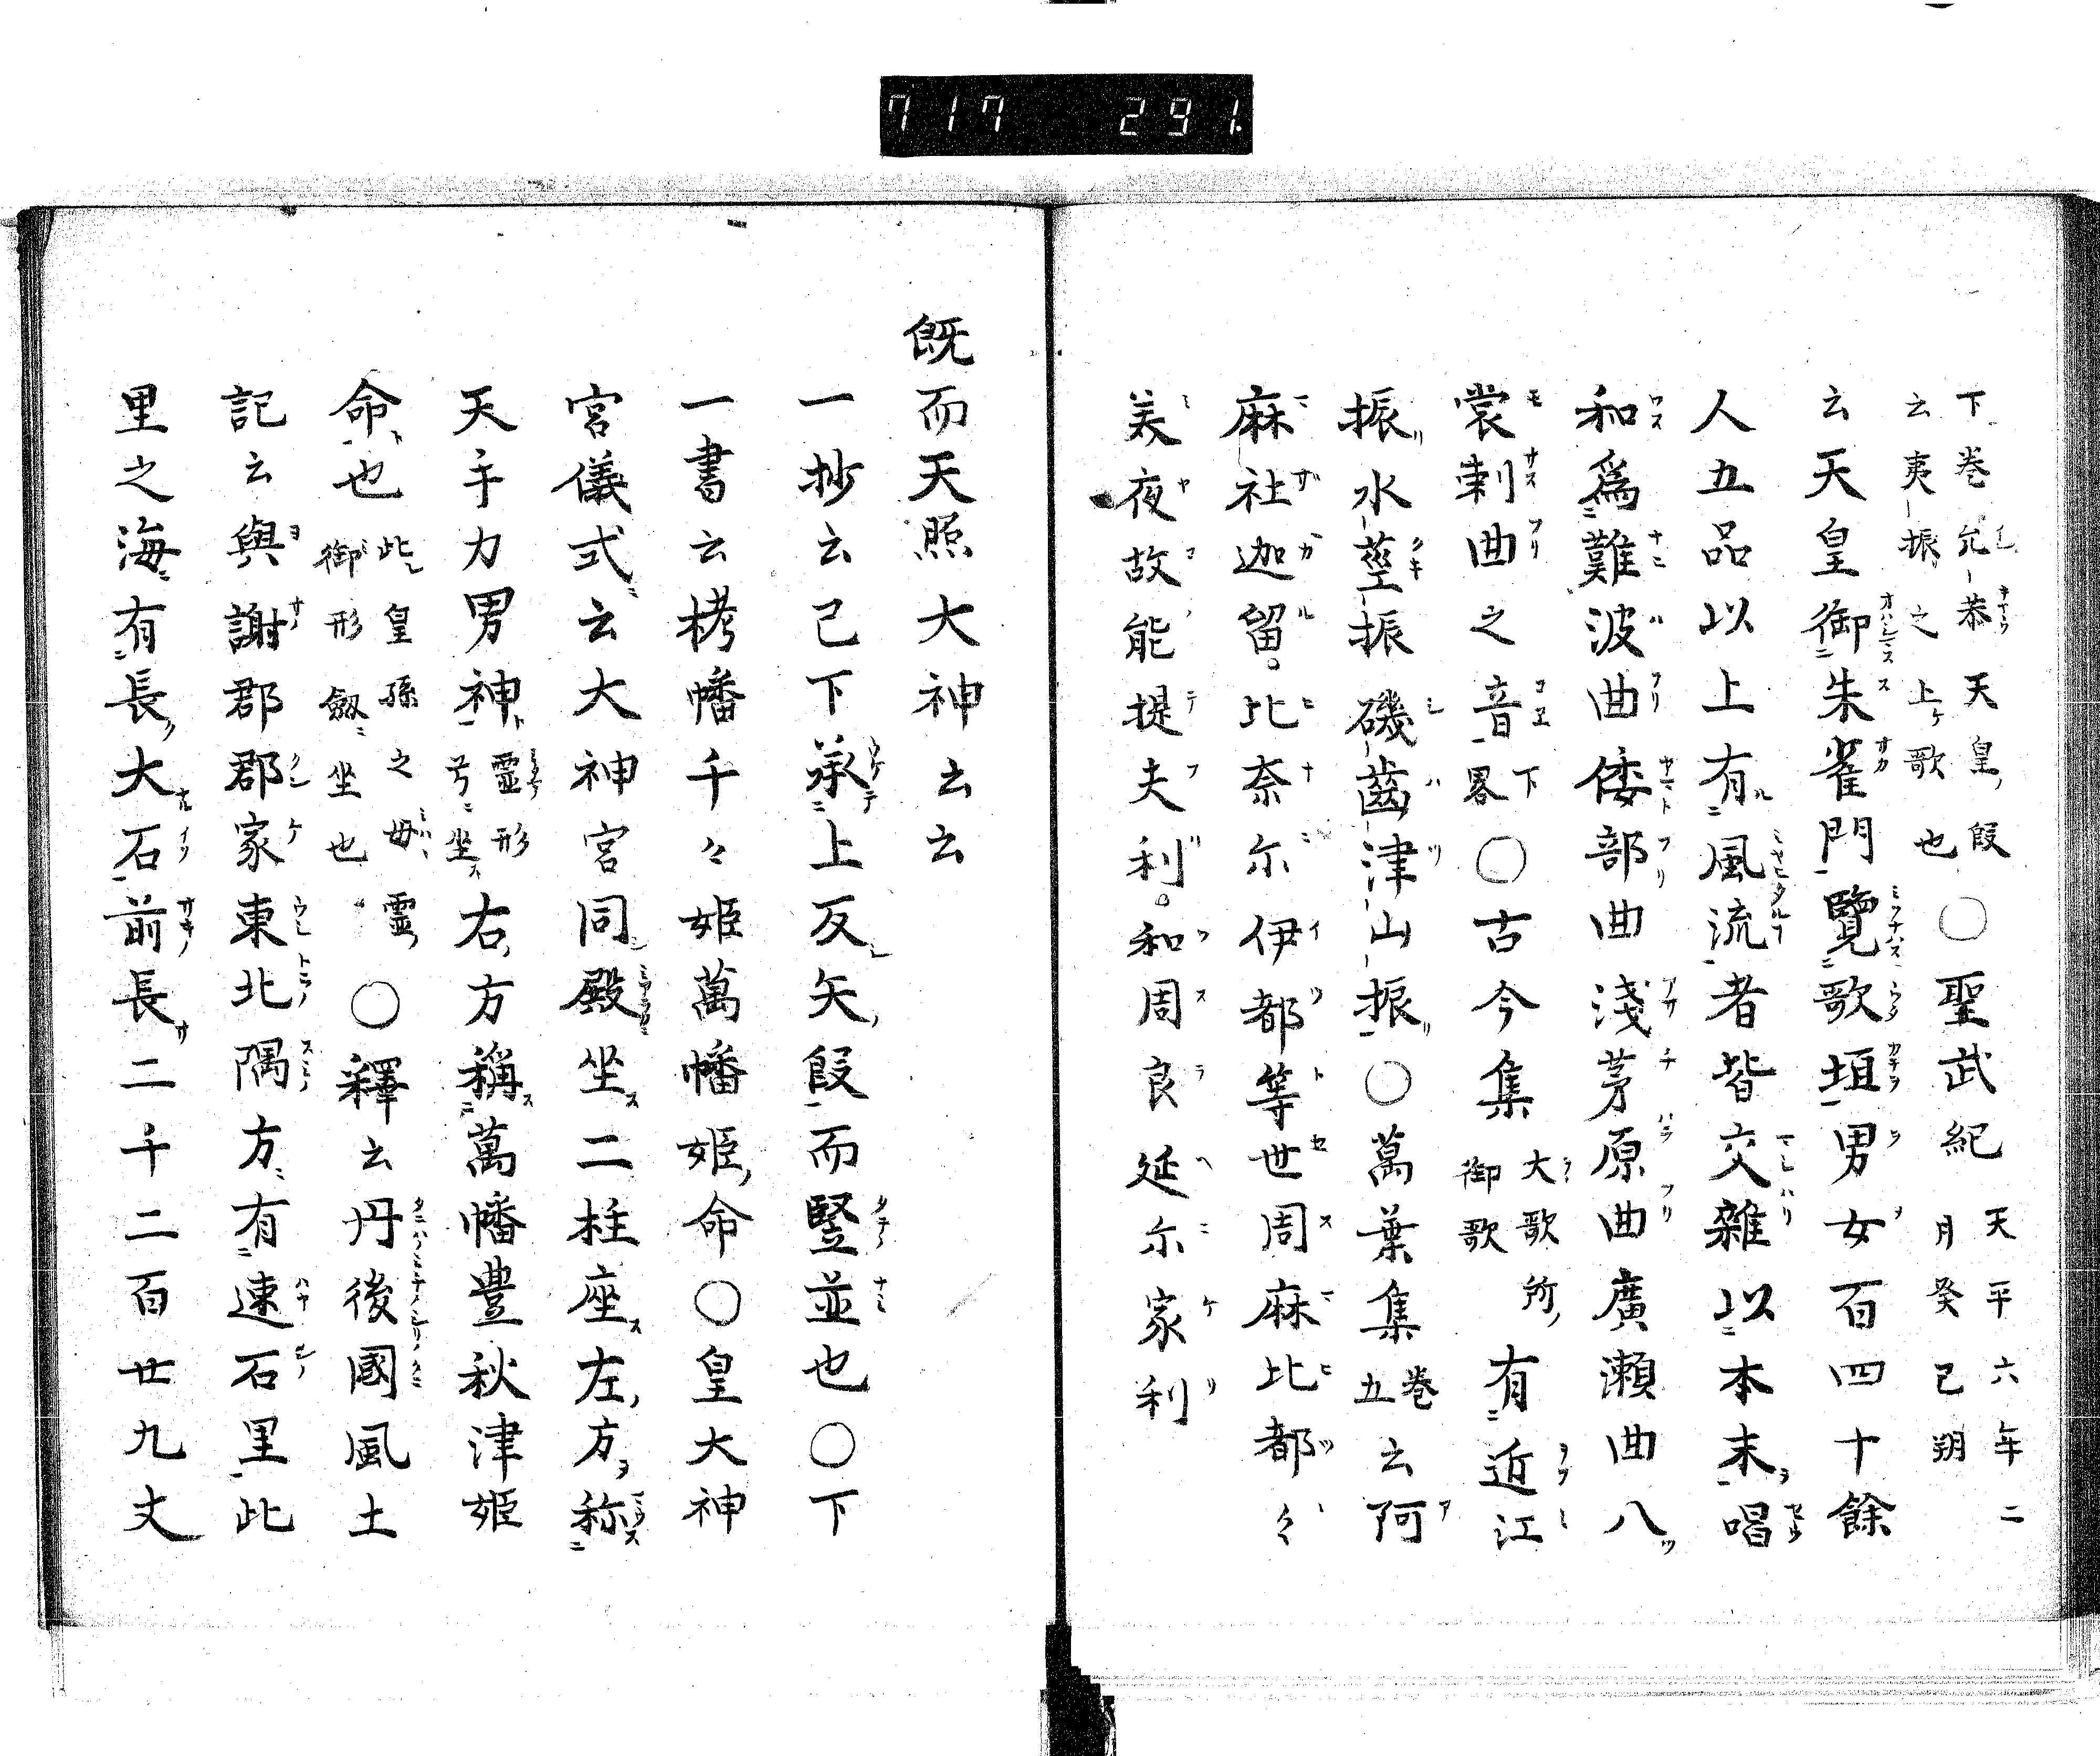 717 291.
下巻允恭天皇段
云夷振之上歌也〇聖武紀天平六年二
月癸已朔
云天皇御朱雀門覽歌垣男女百四十餘
人五品以上有風流者皆交雜以本末唱
和爲難波曲倭部曲淺茅原曲廣瀬曲八
裳刺曲之音下畧〇古今集大歌所御歌有近江
振水莖振磯齒津山振〇萬葉集巻五云阿
麻社迦留。比奈尓伊都等世周麻比都々
美夜故能提夫利。和周良延尓家利
既而天照大神云云
一抄云己下承上反矢段而竪並也〇下
一書云栲幡千々姫萬幡姫命〇皇大神
宮儀式云大神宮同殿坐二柱座左方称
天手力男神靈形弓坐右方稱萬幡豊秋津姫
命也此皇孫之母靈御形劔坐也〇釋云丹後國風土
記云與謝郡郡家東北隅方有速石里此
里之海有長大石前長二千二百廿九丈